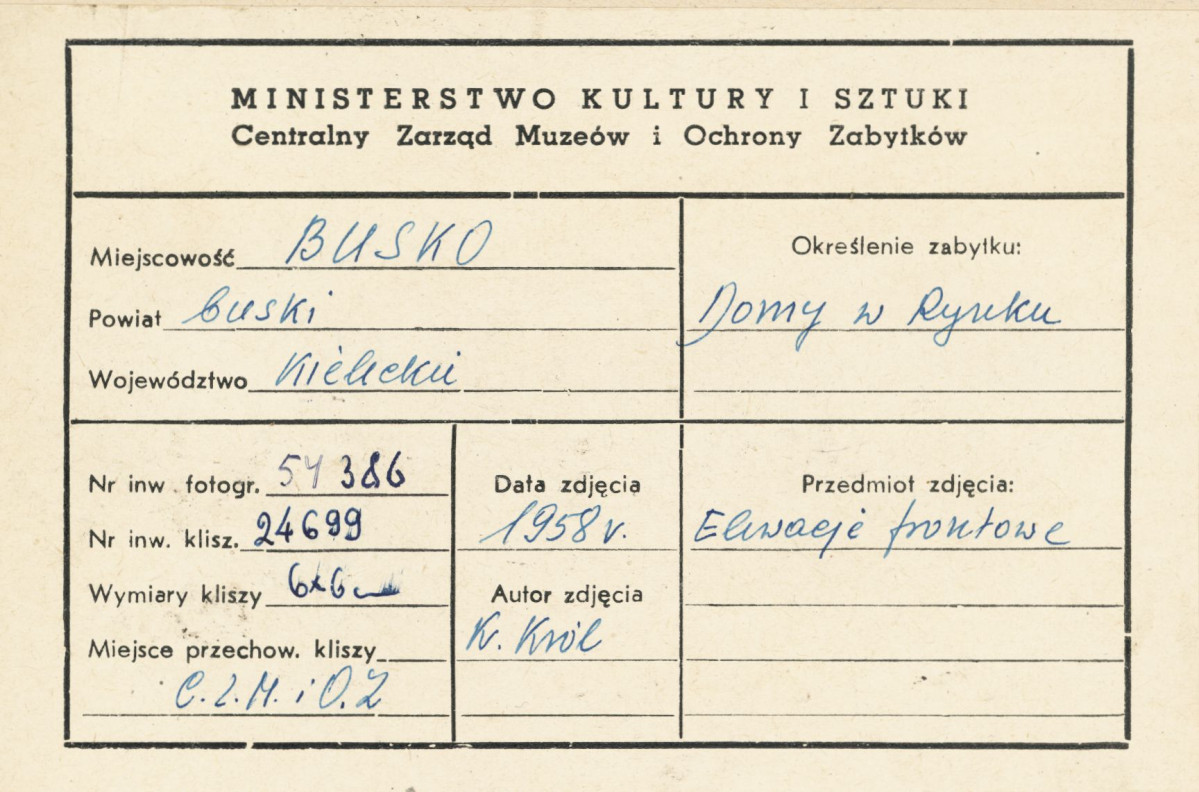 MINISTERSTWO KULTURY I SZTUKI
Centralny Zarząd Muzeów i Ochrony Zabytków
Miejscowość BUSKO
Powiat buski
Województwo Kieleckie
Określenie zabytku:
Domy w Rynku
Nr inw fotogr. 54 386
Nr inw. klisz. 24699
Wymiary kliszy 6x6
Miejsce przechow. kliszy
C.Z.M. i O.Z
Data zdjęcia
1958 r.
Autor zdjęcia
K. Król
Przedmiot zdjęcia:
Elewacje frontowe